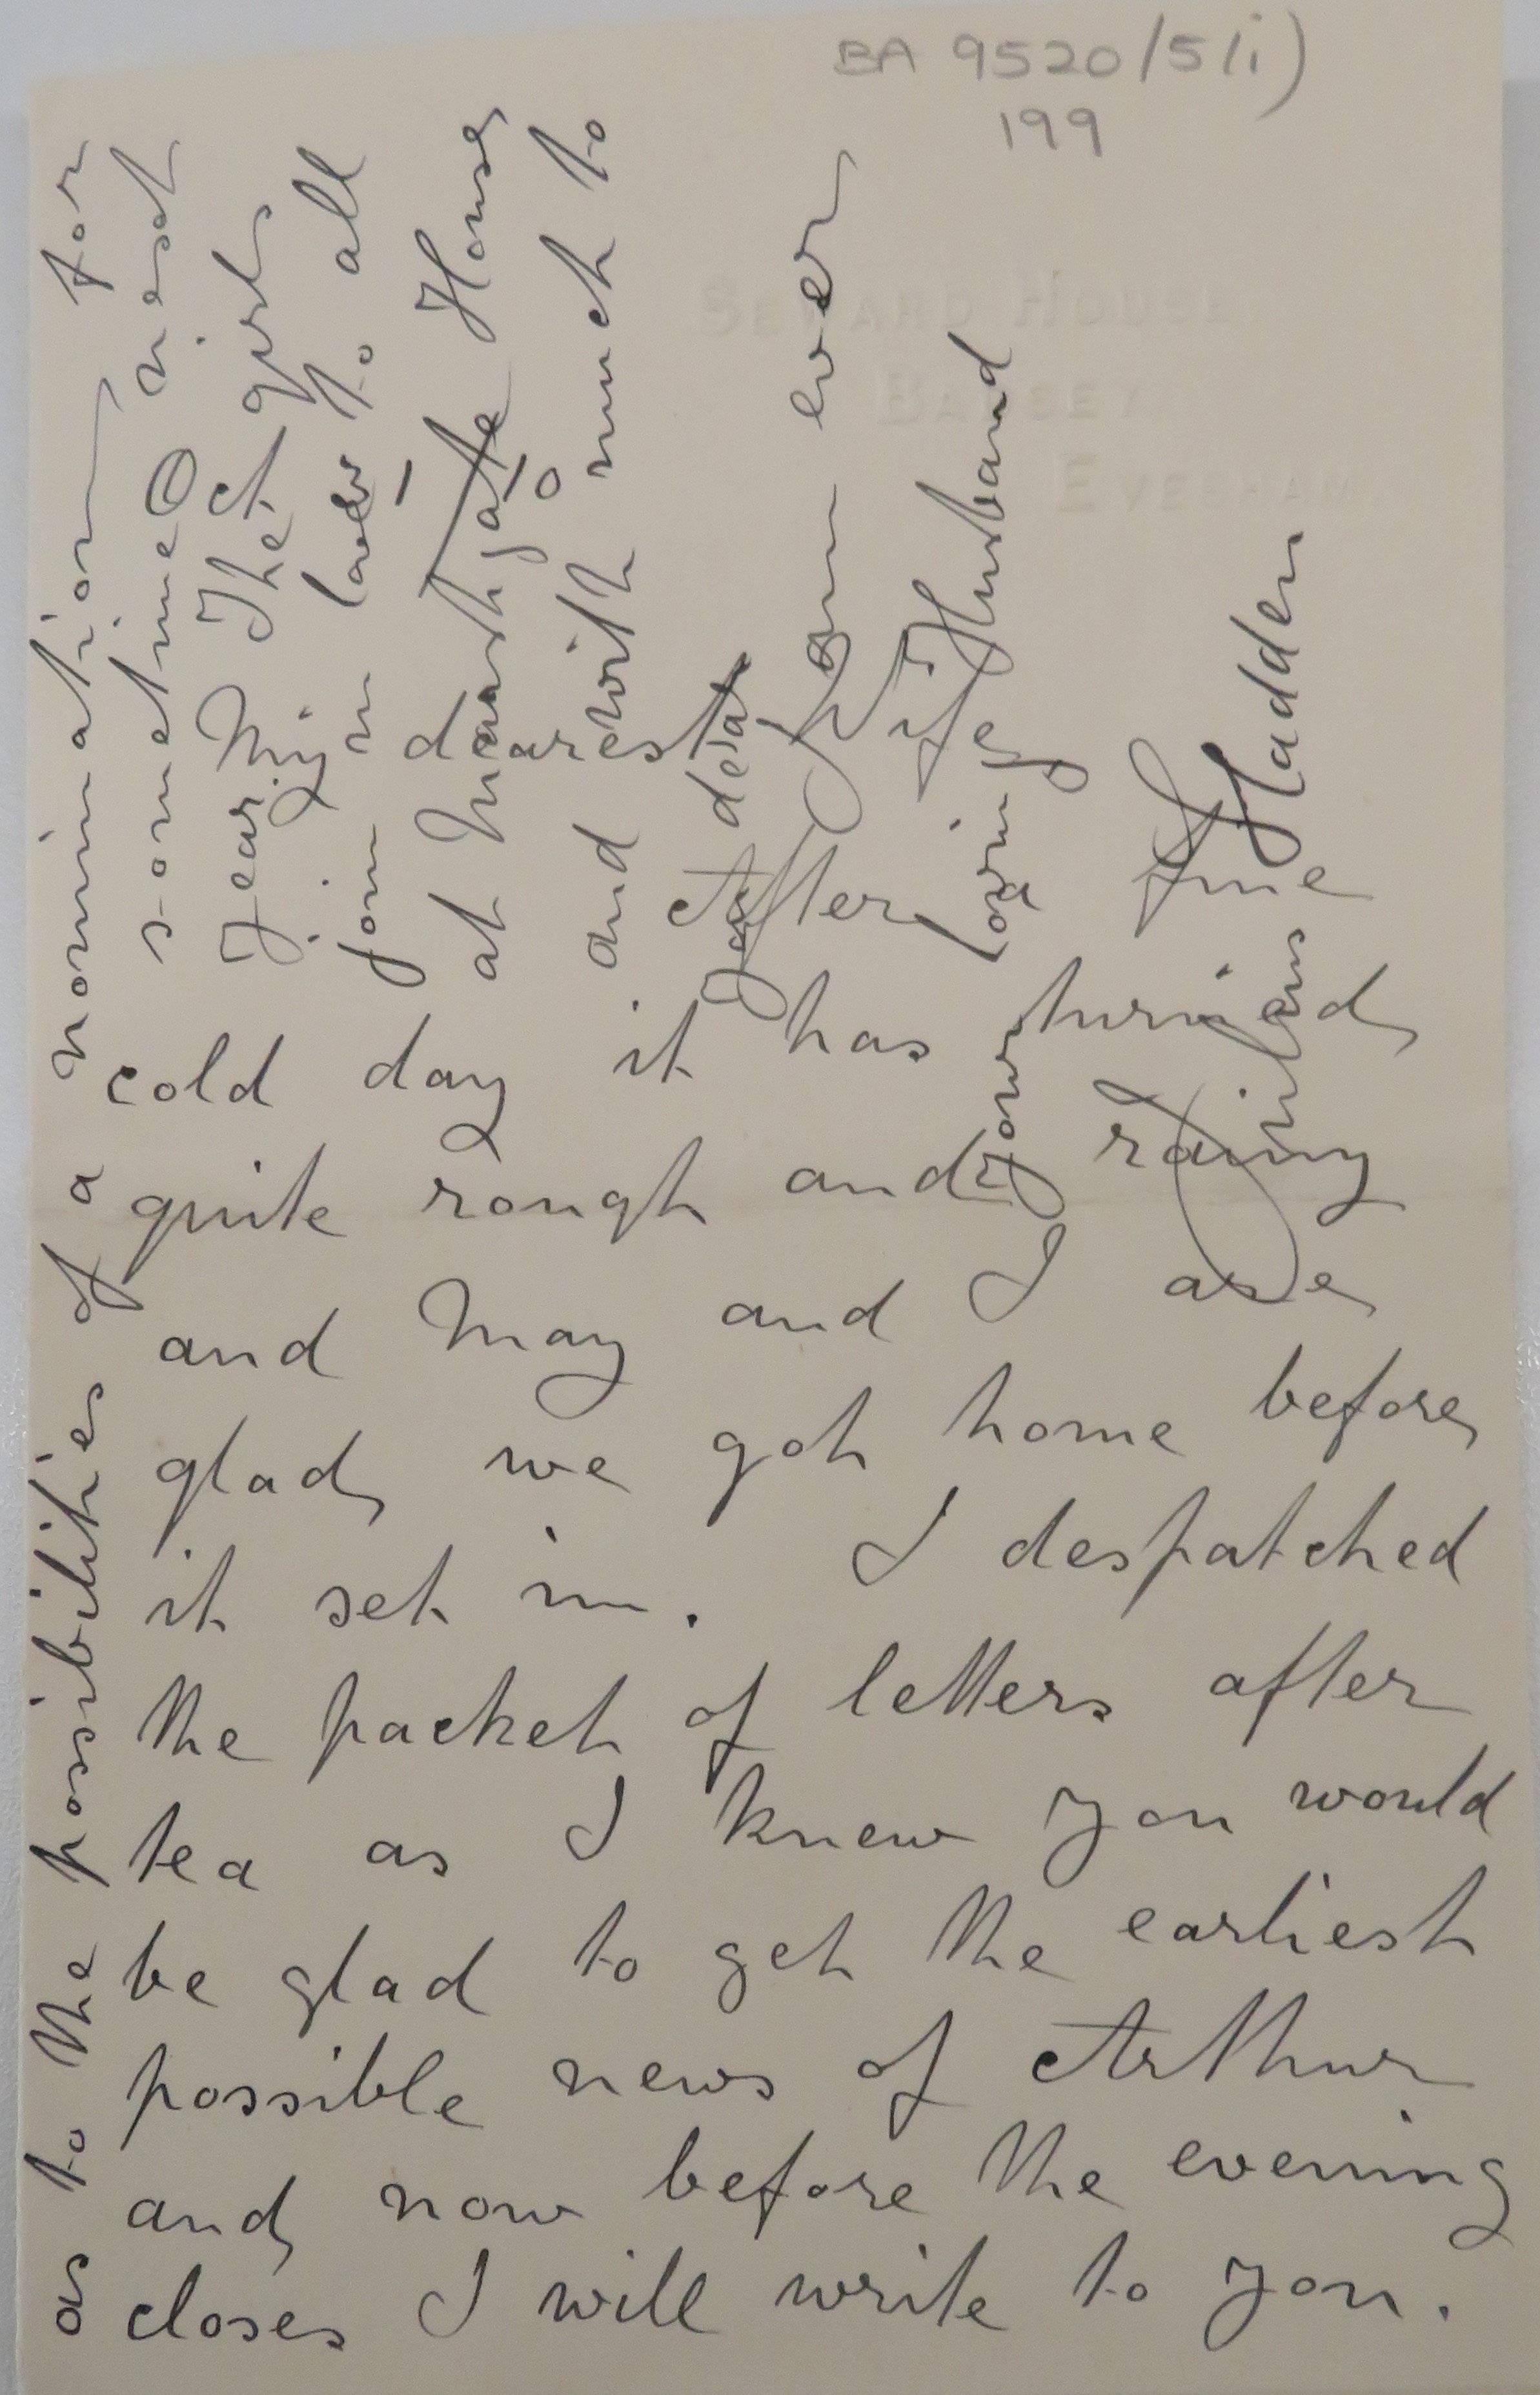 BA 9520/5/(i)
199
SEWARD HOUSE,
BADSEY,
EVESHAM.
My dearest Wife
After a fine
cold day it has turned
quite rough and rainy
and May and I are
glad we got home before
it set in. I despatched
the packet of letters after
tea as I knew you would
be glad to get the earliest
possible news of Arthur
and now before the evening
closes I will write to you.
as to the possibilities of a nomination for
sometime next
year. The girls
join in love to all
at Marthgate House
and with much to
yourself dear I am ever
your loving Husband
Julius Sladden